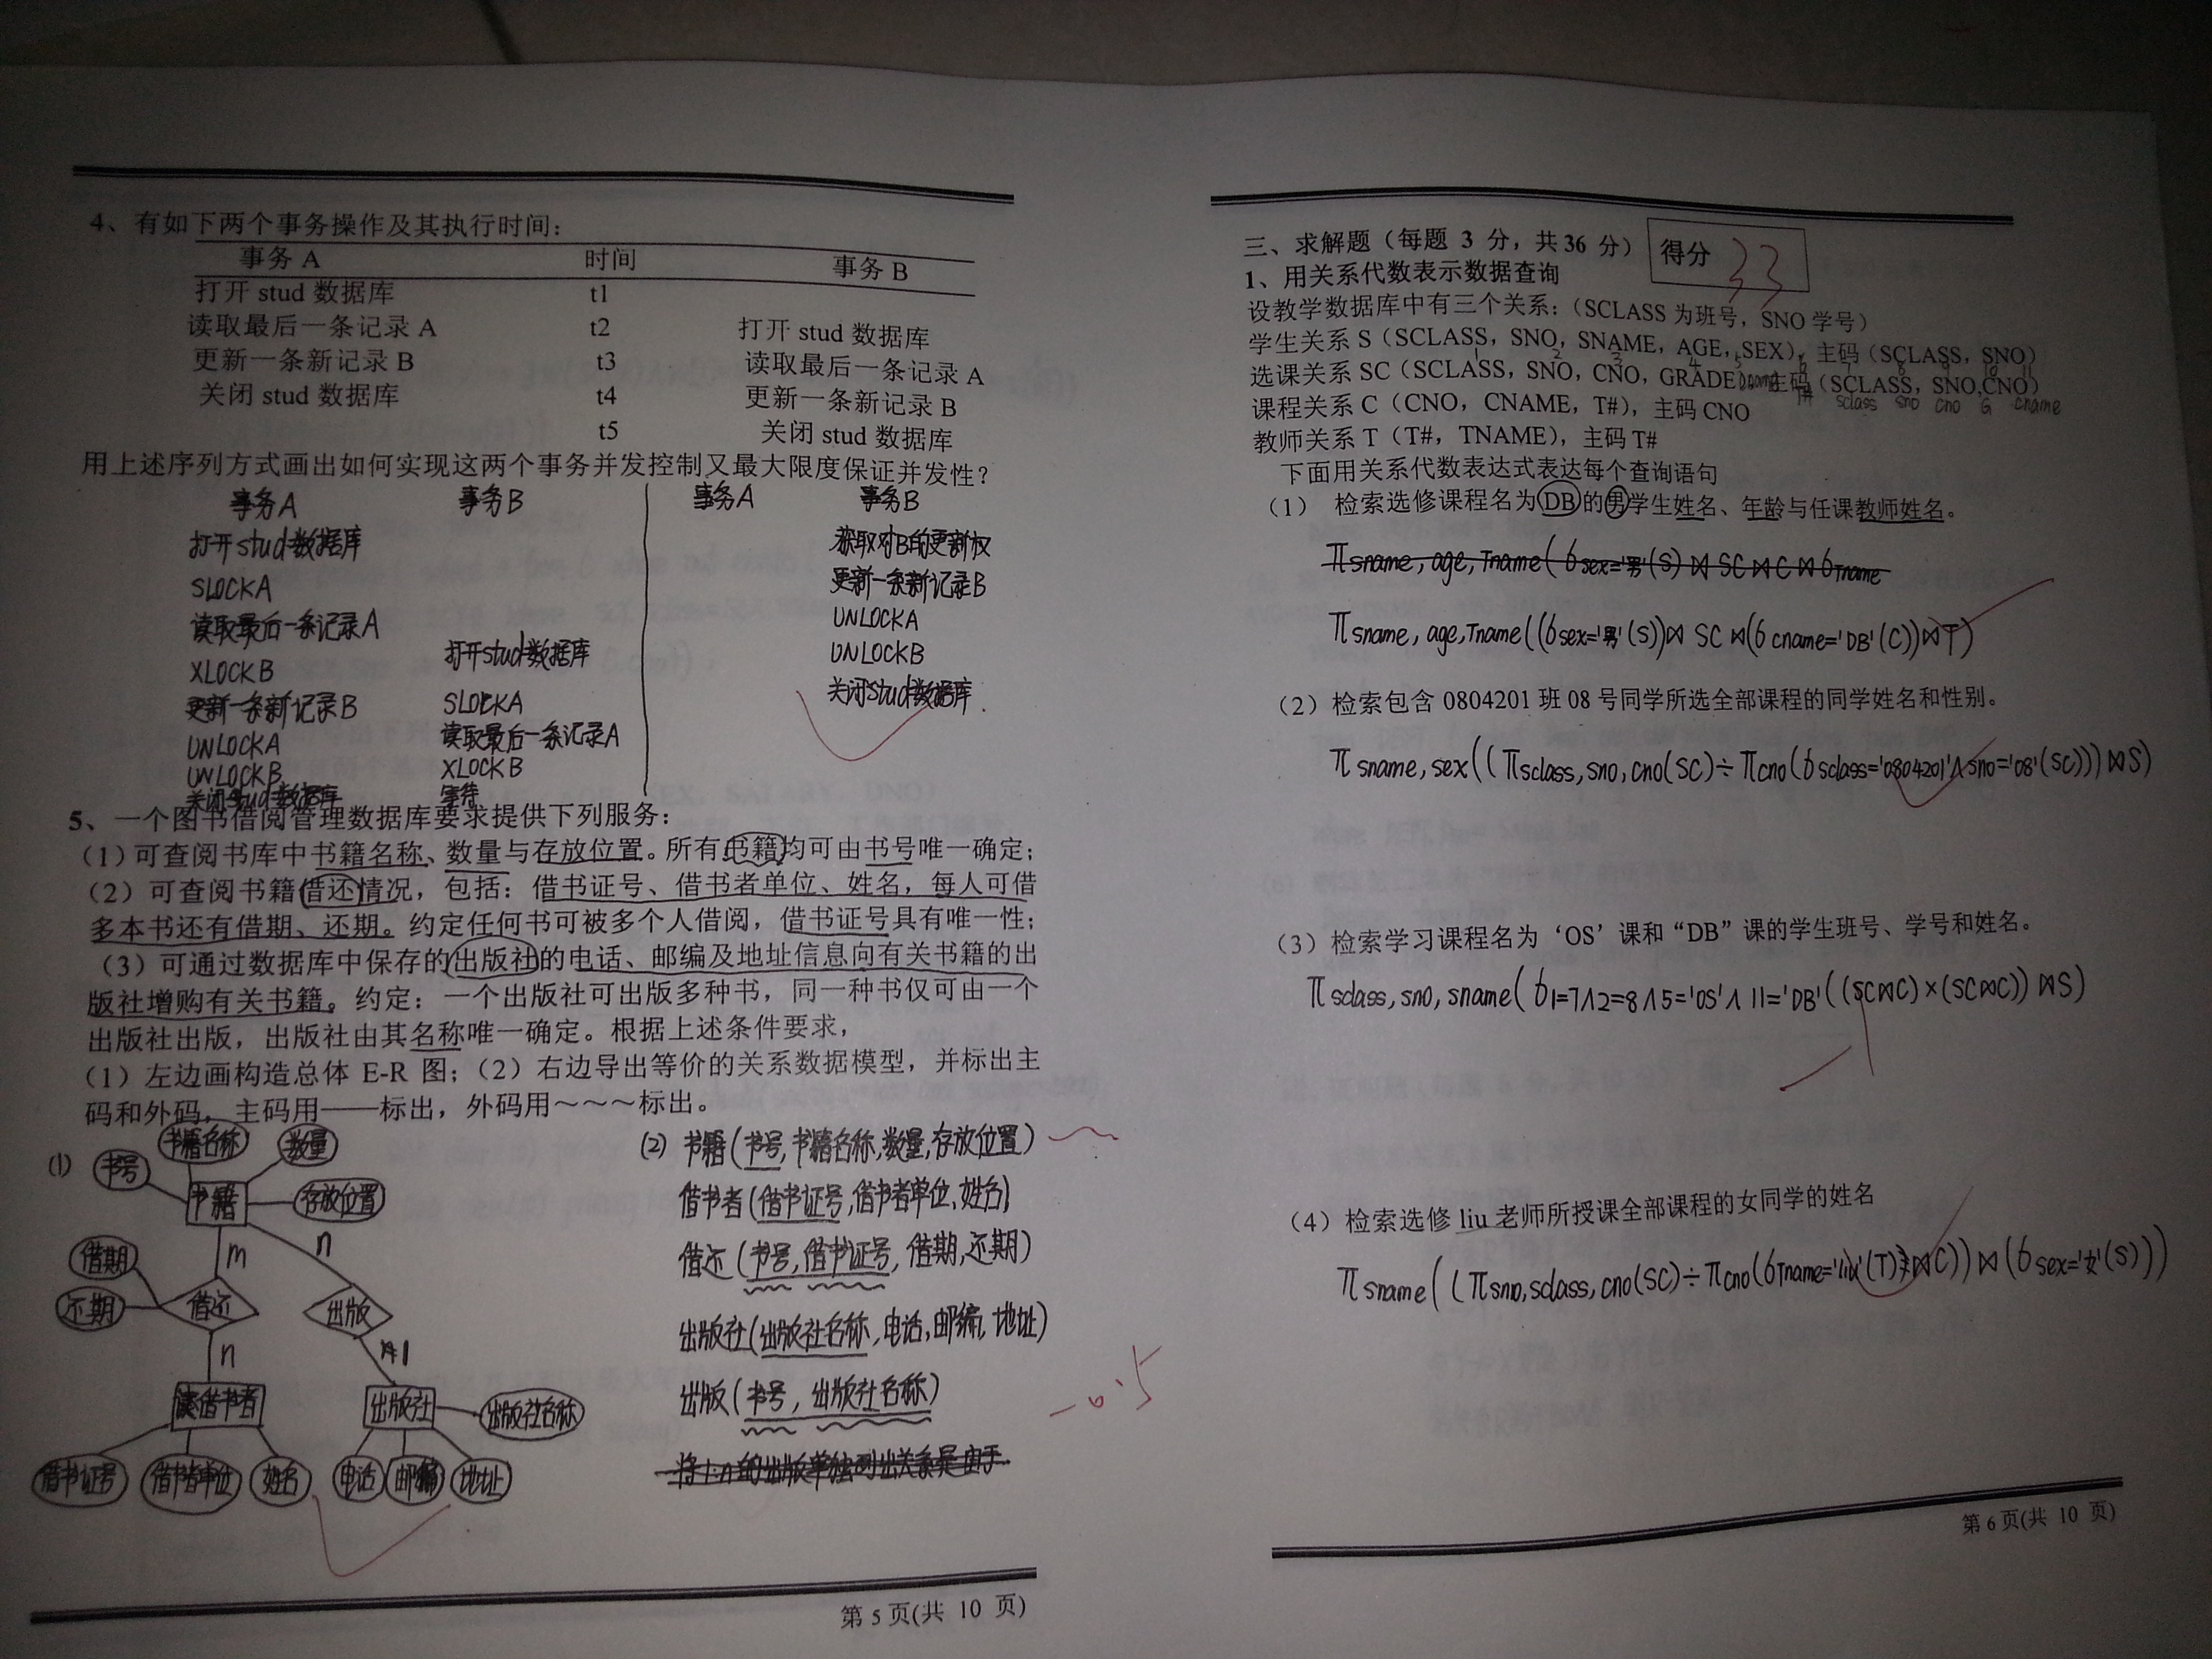 4、有如下两个事务操作及其执行时间：
事务 A 时间 事务 B
打开 stud 数据库 t1
读取最后一条记录 A t2 打开 stud 数据库
更新一条新记录 B t3 读取最后一条记录 A
关闭 stud 数据库 t4 更新一条新记录 B
t5 关闭 stud 数据库
用上述序列方式画出如何实现这两个事务并发控制又最大限度保证并发性？
事务A 事务B 事务A 事务B
打开stud数据库 获取对B的更新权
SLOCKA 更新一条新记录B
读取最后一条记录A UNLOCKA
XLOCKB 打开stud数据库 UNLOCKB
更新一条新记录B SLOCKA 关闭stud数据库.
UNLOCKA 读取最后一条记录A
UNLOCKB XLOCKB
关闭stud数据库 等待
5、一个图书借阅管理数据库要求提供下列服务：
（1）可查阅书库中书籍名称、数量与存放位置。所有书籍均可由书号唯一确定；
（2）可查阅书籍借还情况，包括：借书证号、借书者单位、姓名，每人可借
多本书还有借期、还期。约定任何书可被多个人借阅，借书证号具有唯一性；
（3）可通过数据库中保存的出版社的电话、邮编及地址信息向有关书籍的出
版社增购有关书籍。约定：一个出版社可出版多种书，同一种书仅可由一个
出版社出版，出版社由其名称唯一确定。根据上述条件要求，
（1）左边画构造总体 E-R 图；（2）右边导出等价的关系数据模型，并标出主
码和外码。主码用——标出，外码用～～～标出。
(1) 书号 书籍名称 数量
书籍 存放位置
m n
借期
还期 借还 出版
n 1
借书者 出版社 出版社名称
借书证号 借书者单位 姓名 电话 邮编 地址
(2) 书籍(书号,书籍名称,数量,存放位置)
借书者(借书证号,借书者单位,姓名)
借还(书号,借书证号,借期,还期)
出版社(出版社名称,电话,邮编,地址)
出版(书号,出版社名称)
-0.5
将1:n的出版单独列出关系是由于
第 5 页(共 10 页)
三、求解题（每题 3 分，共 36 分） 得分 33
1、用关系代数表示数据查询
设教学数据库中有三个关系：（SCLASS 为班号，SNO 学号）
学生关系 S（SCLASS，SNO，SNAME，AGE，SEX），主码（SCLASS，SNO）
1 2 3 4 5 6 7 8 9 10 11
选课关系 SC（SCLASS，SNO，CNO，GRADE），主码（SCLASS，SNO,CNO）
T# sclass sno cno G cname
课程关系 C（CNO，CNAME，T#），主码 CNO
教师关系 T（T#，TNAME），主码 T#
下面用关系代数表达式表达每个查询语句
（1） 检索选修课程名为 DB 的男学生姓名、年龄与任课教师姓名。
πsname,age,Tname(σsex='男'(S)⋈SC⋈C⋈σTname
πsname,age,Tname((σsex='男'(S))⋈SC⋈(σcname='DB'(C))⋈T)
（2）检索包含 0804201 班 08 号同学所选全部课程的同学姓名和性别。
πsname,sex((πsclass,sno,cno(SC)÷πcno(σsclass='0804201'∧sno='08'(SC)))⋈S)
（3）检索学习课程名为‘OS’课和“DB”课的学生班号、学号和姓名。
πsclass,sno,sname(σ1=7∧2=8∧5='OS'∧11='DB'((SC⋈C)×(SC⋈C))⋈S)
（4）检索选修 liu 老师所授课全部课程的女同学的姓名
πsname((πsno,sclass,cno(SC)÷πcno(σTname='liu'(T)⋈C))⋈(σsex='女'(S)))
第 6 页(共 10 页)